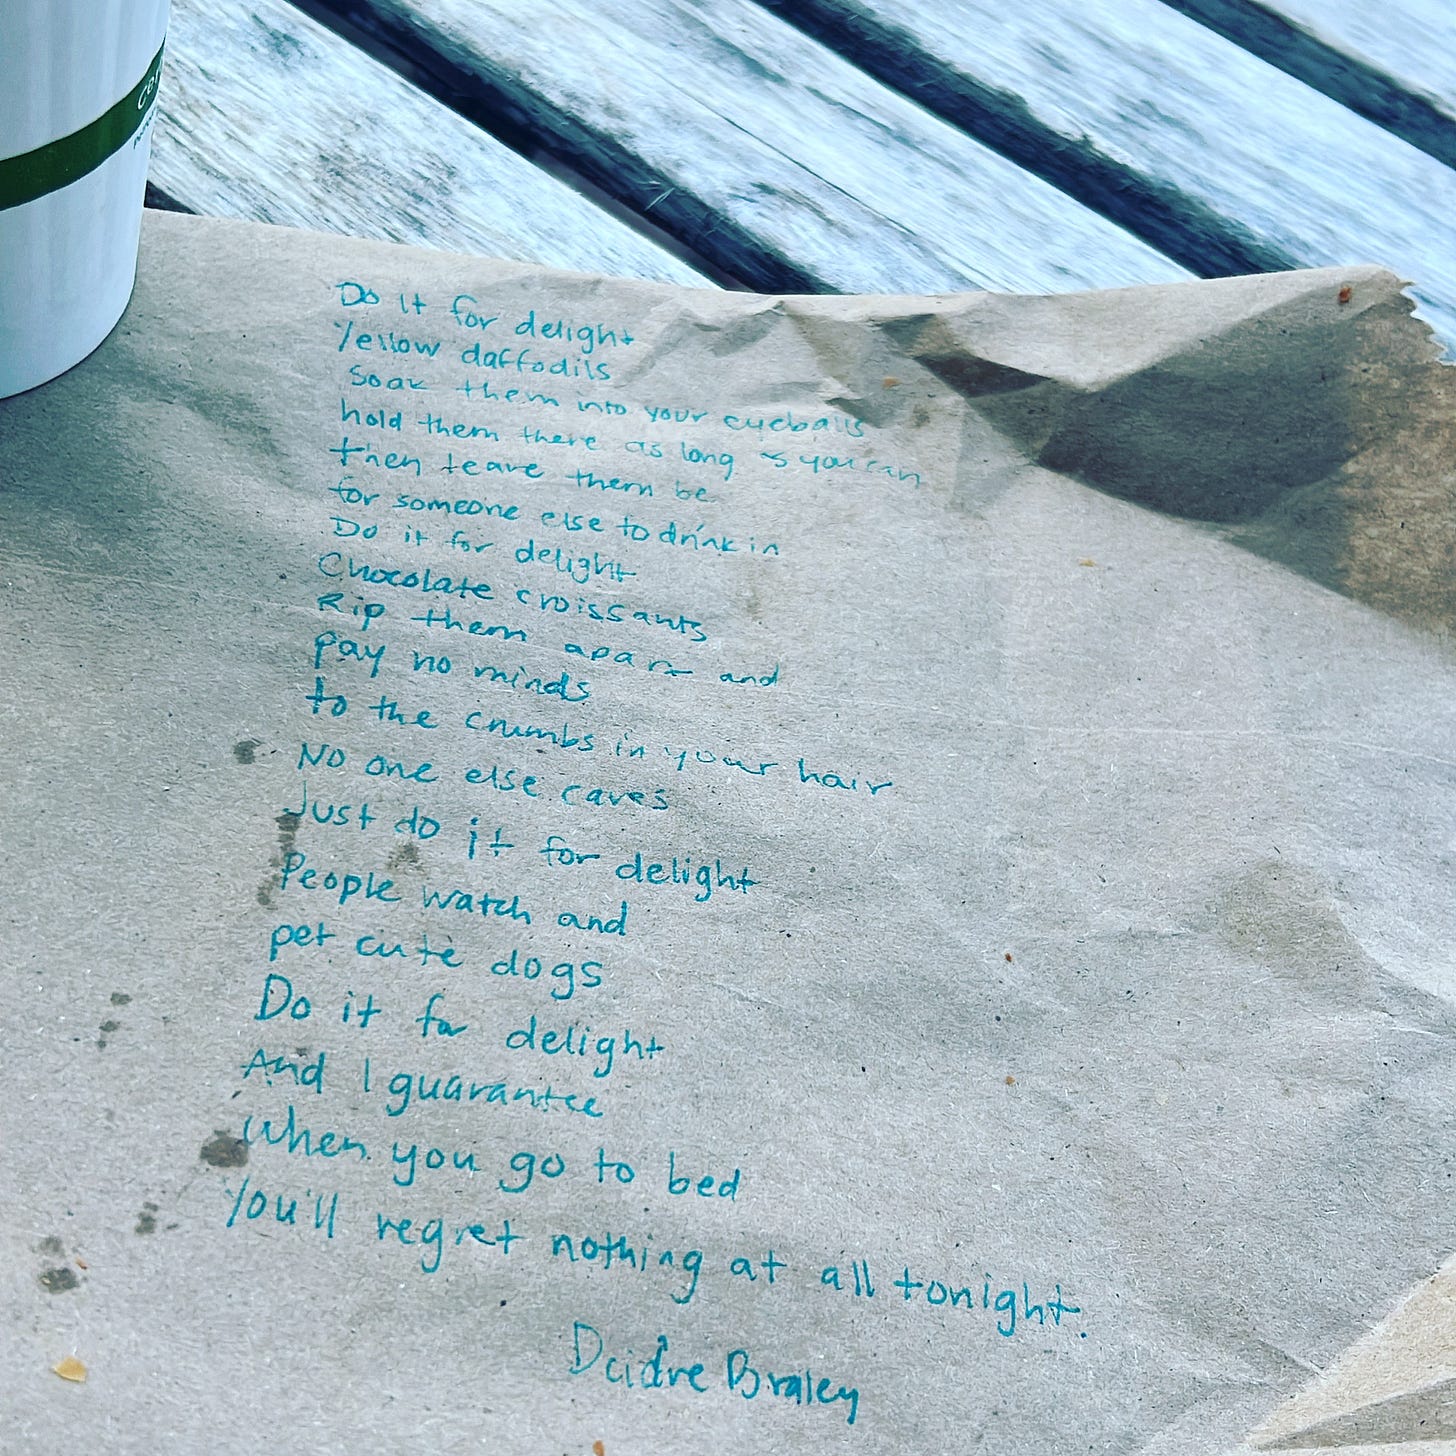 Do it for delight
Yellow daffodils
Soak them into your eyeballs
hold them there as long as you can
then leave them be
for someone else to drink in
Do it for delight
Chocolate croissants
Rip them apart and
pay no minds
to the crumbs in your hair
No one else cares
Just do it for delight
People watch and
pet cute dogs
Do it for delight
And I guarantee
When you go to bed
You'll regret nothing at all tonight.
Deidre Braley